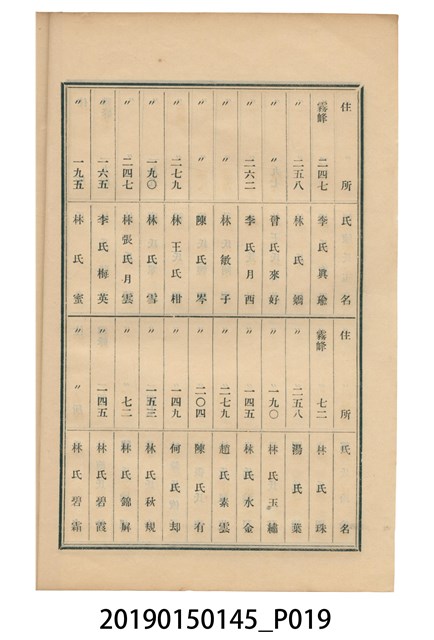 住所 氏名
霧峰 二四七 李氏眞瑜
〃 二五八 林氏嬌
〃 〃 曾氏來好
〃 二六二 李氏月酉
〃 〃 林敏子
〃 〃 陳氏岑
〃 二七九 林王氏柑
〃 一九〇 林氏雪
〃 二四七 林張氏月雲
〃 一六五 李氏梅英
〃 一九五 林氏蜜
住所 氏名
霧峰 七二 林氏珠
〃 二五八 湯氏葉
〃 一九〇 林氏玉繡
〃 一四五 林氏水金
〃 二七九 趙氏素雲
〃 二〇四 陳氏有
〃 一四九 何氏却
〃 一五三 林氏秋規
〃 七二 林氏錦
〃 一四五 林氏碧霞
〃 〃 林氏碧霜
20190150145_P019